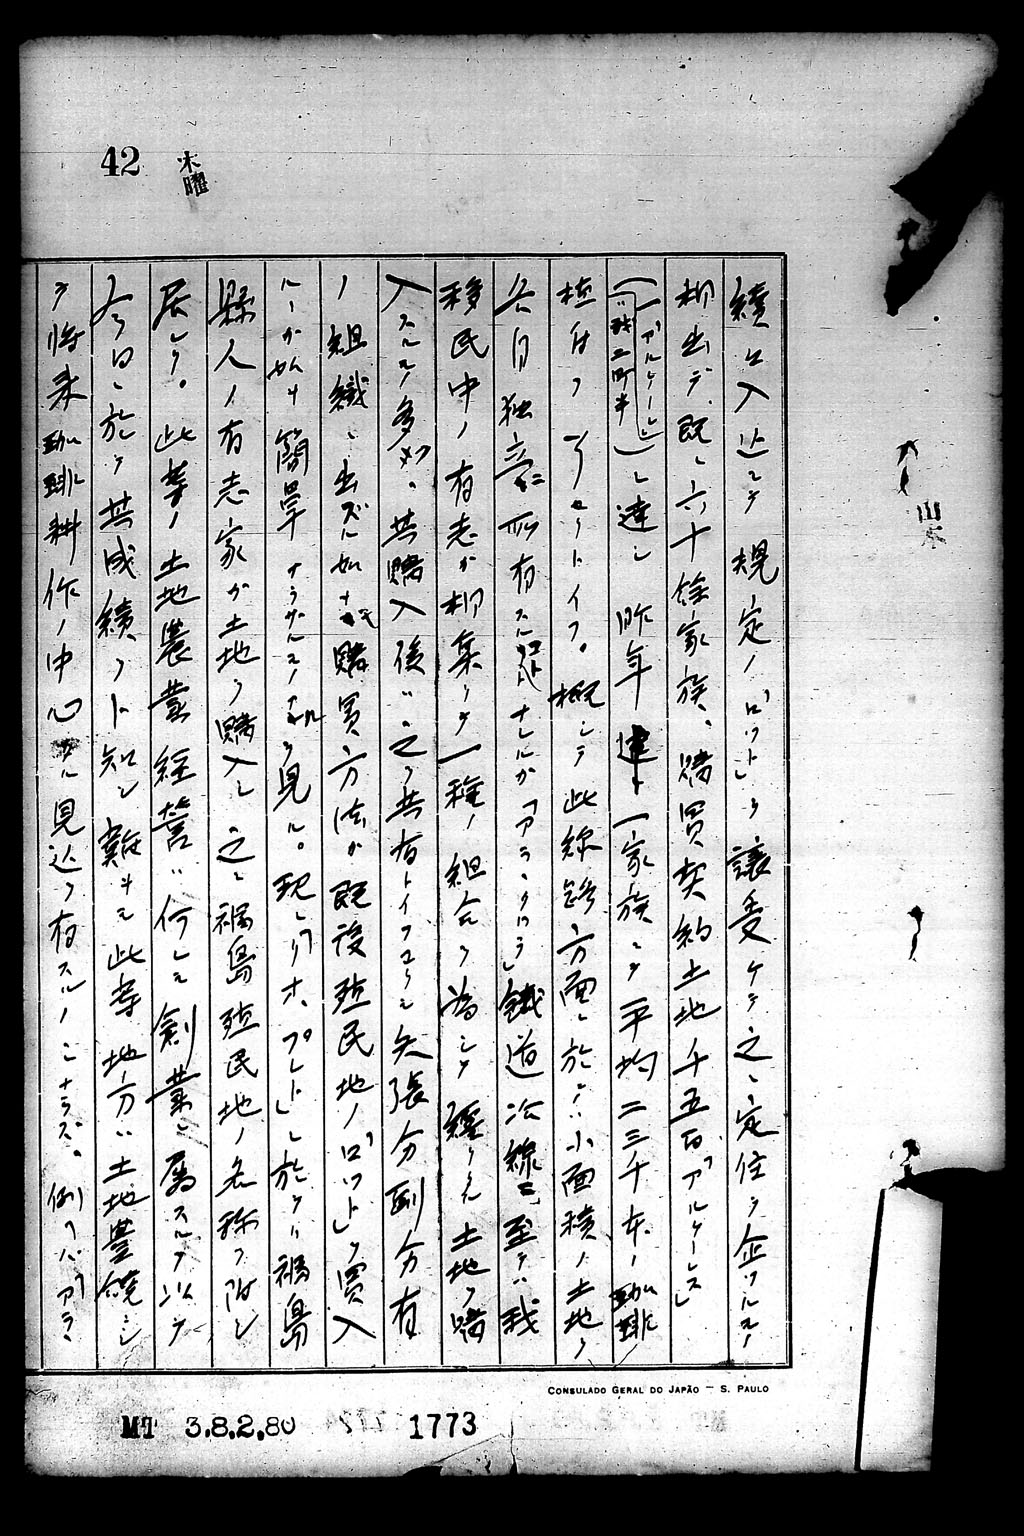 42
木曜
續々入込ミテ規定ノ「ロット」ヲ讓受ケテ之ニ定住ヲ企ツルモノ
相出デ、既ニ六十餘家族、購買契約土地千五百「アルケーレス」
(一「アルケーレ」ハ我二町半)ニ達シ昨年一家族ニテ平均二三千本ノ珈琲
植付ヲ了セリトイフ。概シテ此線路方面ニ於テハ小面積ノ土地ヲ
各自獨立所有スルコトナレルガ「アララクワラ」鐵道沿線ニ至テハ我
移民中ノ有志ガ相集リテ一種ノ組合ヲ為シテ纏リタル土地ヲ購
入スルモノ多ク、其購入後ハ之ヲ共有トイフヨリモ矢張分割分有
ノ組織ニ出ズ如ナガ購買方法ガ既設殖民地ノ「ロット」ヲ買入
ルヽガ如ク簡単ナラザルモノナルヲ見ル。現ニ「リオ、プレト」ニ於ケル福島
縣人ノ有志家ガ土地ヲ購入シ之ニ福島殖民地ノ名称ヲ附シ
居レリ。此等ノ土地農業経營ハ何レモ創業ニ屬スルヲ以テ
今日ニ於テ其成績ヲト知シ難キモ此等地方ハ土地豊饒ニシ
テ将来珈琲耕作ノ中心タル見込ヲ有スルノミナラズ、例ヘバ「アラ
CONSULADO GERAL DO JAPÃO — S. PAULO
MT 3.8.2.80 1773